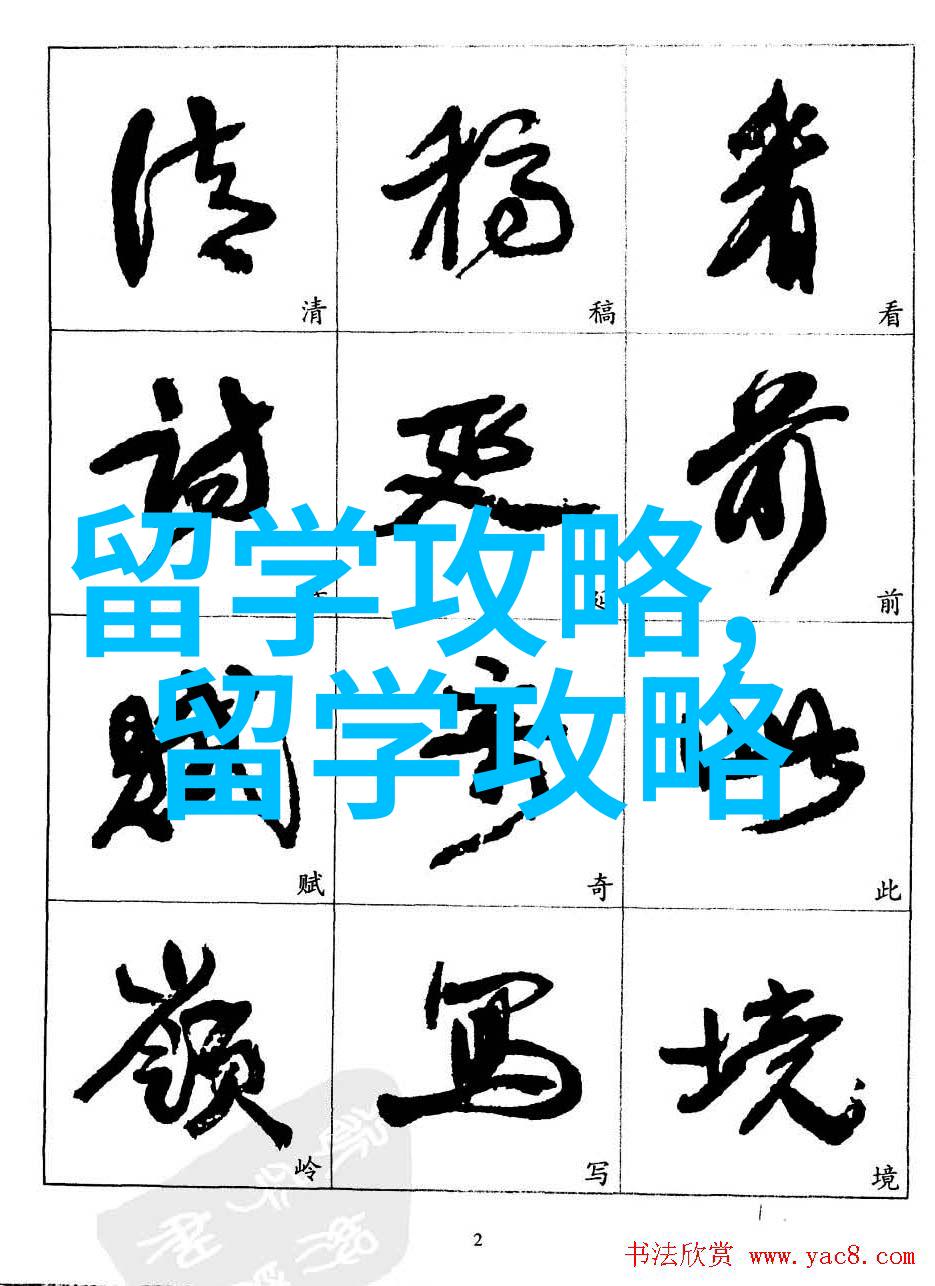 清 稿 看
前
留学攻略,
留学攻略
赋 奇 此
岭 写 境
2
书法欣赏 www.yac8.com